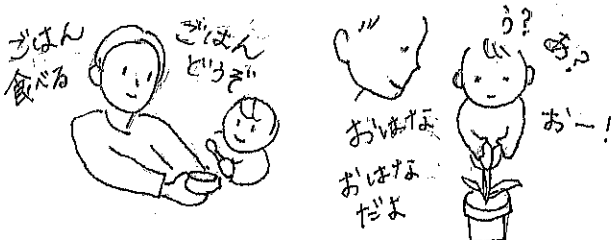 ごはん
食べる
ごはん
どうぞ
おはな
おはな
だよ
う?
おー!